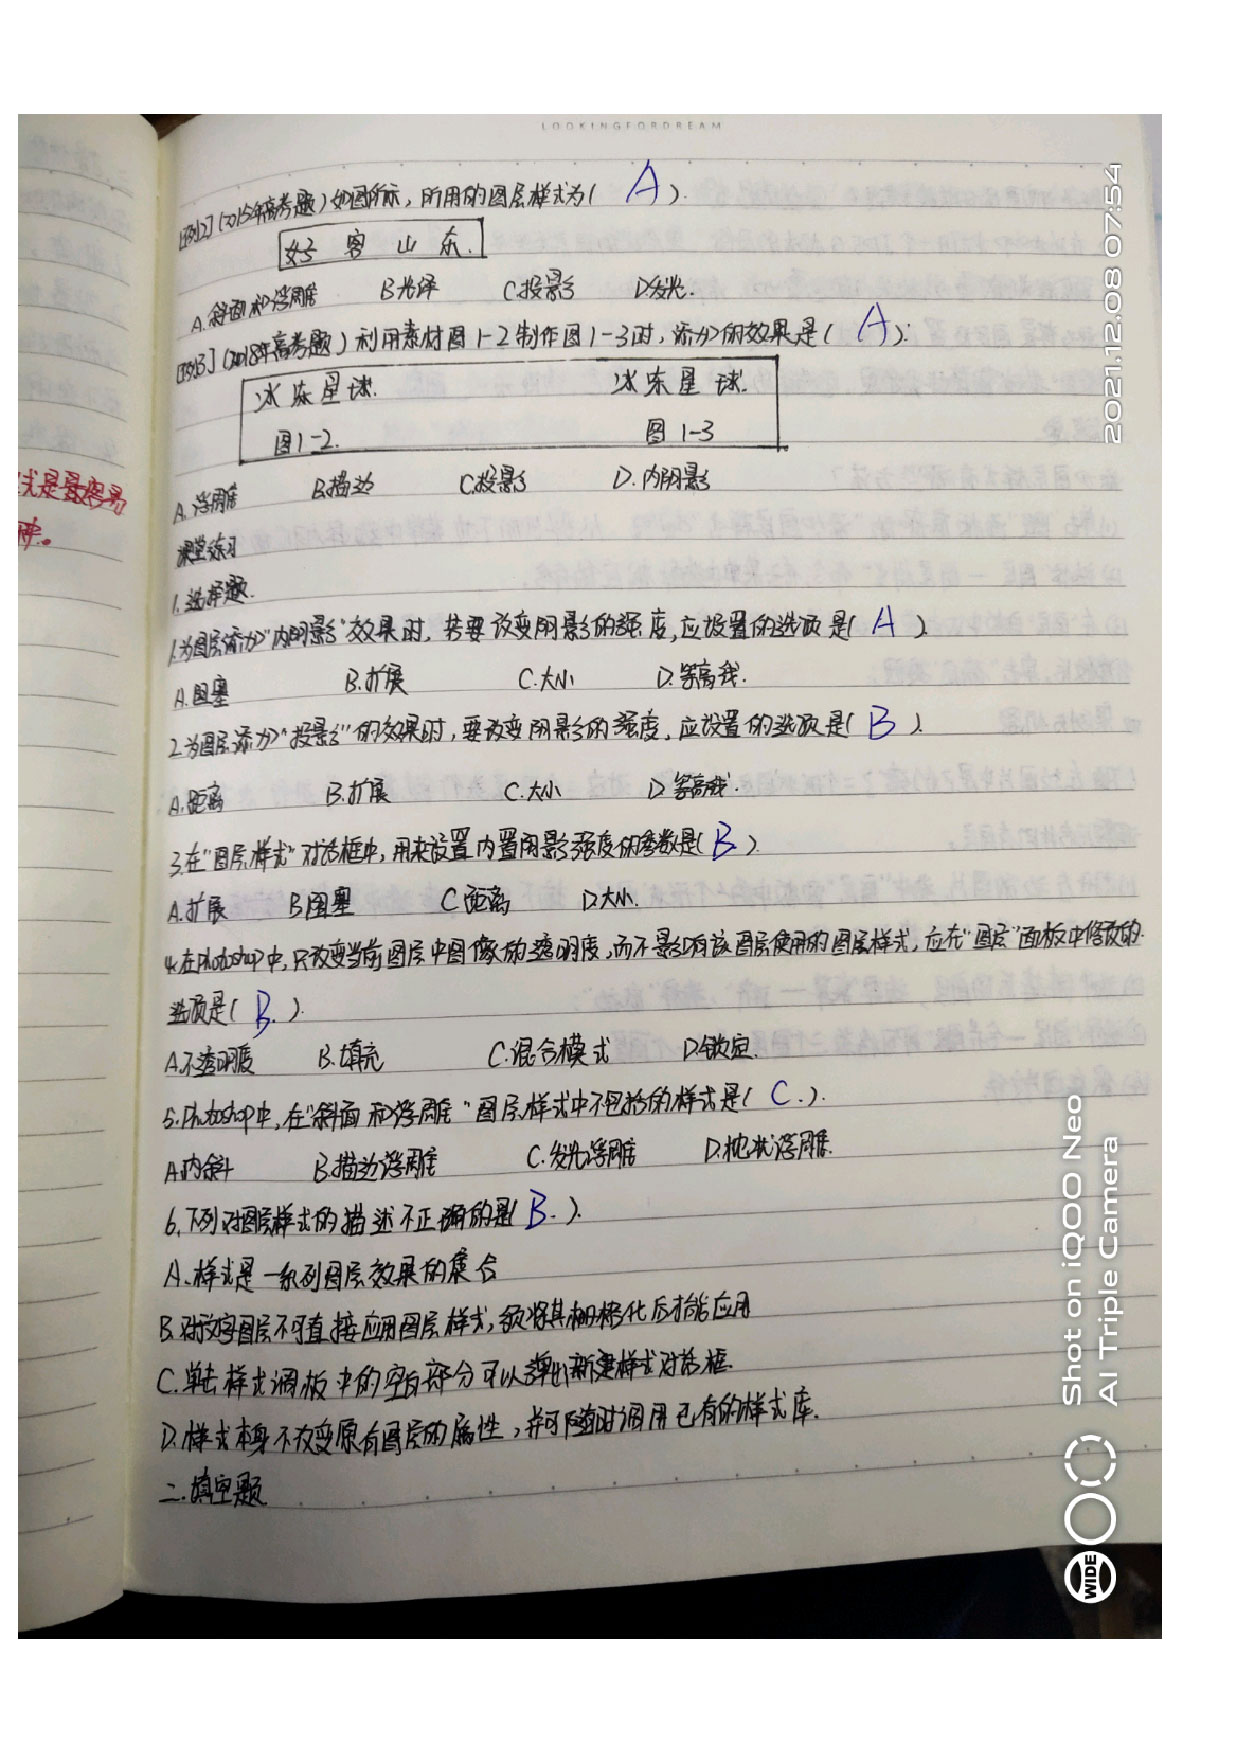 LOOKINGFORDREAM
[例2](2015年高考题)如图所示,所用的图层样式为( A ).
好 客 山 东.
A.斜面和浮雕 B光泽 C投影 D发光.
[例3](2018年高考题)利用素材图1-2制作图1-3时,添加的效果是( A ):
冰冻星球. 冰冻星球.
图1-2. 图1-3
A.浮雕 B.描边 C.投影 D.内阴影
课堂练习
1.选择题.
1.为图层添加"内阴影"效果时,若要改变阴影的强度,应设置的选项是( A ).
A.阻塞 B.扩展 C.大小 D.等高线.
2.为图层添加"投影"的效果时,要改变阴影的强度,应设置的选项是( B ).
A.距离 B.扩展 C.大小 D等高线.
3.在"图层样式"对话框中,用来设置内置阴影强度的参数是( B ).
A.扩展 B阻塞 C距离 D大小.
4.在Photoshop中,只改变当前图层中图像的透明度,而不影响该图层使用的图层样式,应在"图层"面板中修改的
选项是( B. ).
A.不透明度 B.填充 C.混合模式 D.锁定.
5.Photoshop中,在"斜面和浮雕"图层样式中不包括的样式是( C. ).
A.内斜 B.描边浮雕 C.发光浮雕 D.枕状浮雕.
6.下列对图层样式的描述不正确的是( B. ).
A.样式是一系列图层效果的集合
B.对文字图层不可直接应用图层样式,须将其栅格化后才能应用
C.单击样式调板中的空白部分可以弹出新建样式对话框.
D.样式本身不改变原有图层的属性,并可随时调用已有的样式库.
二.填空题
式是最容易
种。
2021.12.08 07:54
Shot on iQOO Neo
AI Triple Camera
WIDE